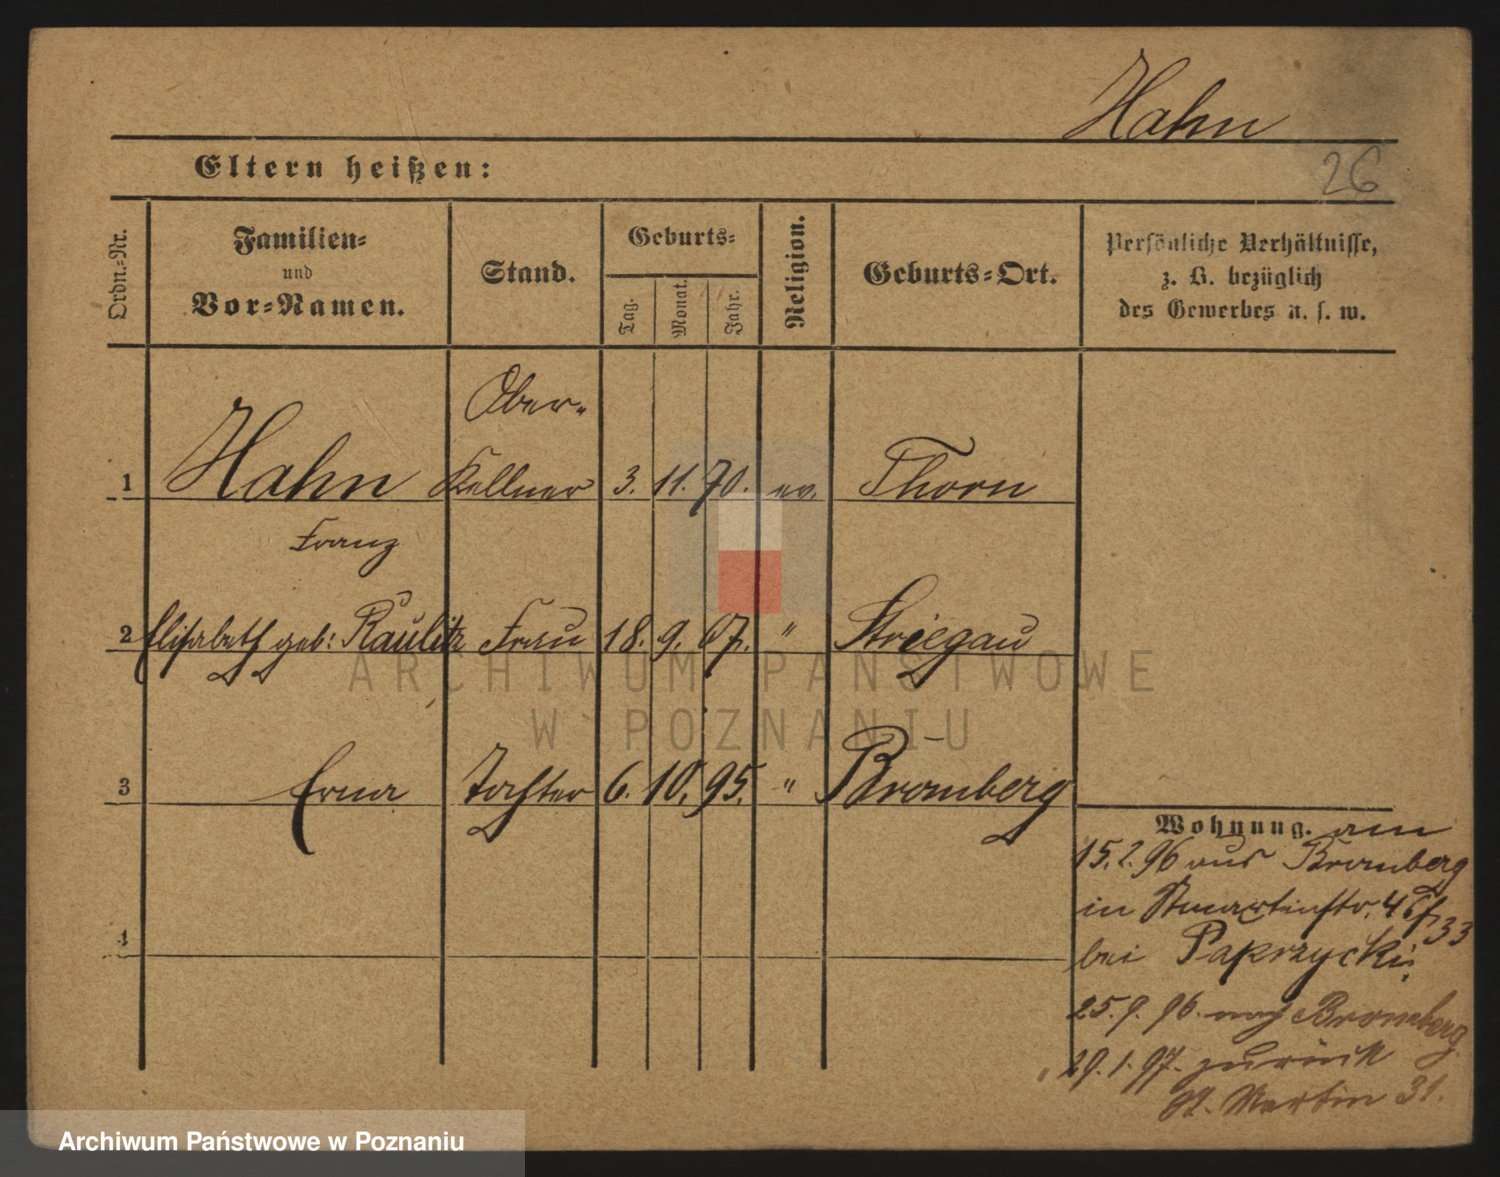 Hahn
26
Eltern heißen:
Ordn.-Nr.
Familien-
und
Vor-Namen.
Stand.
Geburts-
Tag.
Monat.
Jahr.
Religion.
Geburts-Ort.
Persönliche Verhältnisse,
z. B. bezüglich
des Gewerbes u. s. w.
Ober-
1 Hahn Kellner 3. 11. 70. ev. Thorn
Franz
2 Elisabeth geb: Raulitz Frau 18. 9. 67. " Striegau
3 Erna Tochter 6. 10. 95. " Bromberg
4
Wohnung. am
15. 2. 96 aus Bromberg
in Stmartinstr. 33
bei Paprzycki.
25. 9. 96. nach Bromberg.
29. 1. 97. zurück
St. Martin 31.
ARCHIWUM PAŃSTWOWE
W POZNANIU
Archiwum Państwowe w Poznaniu